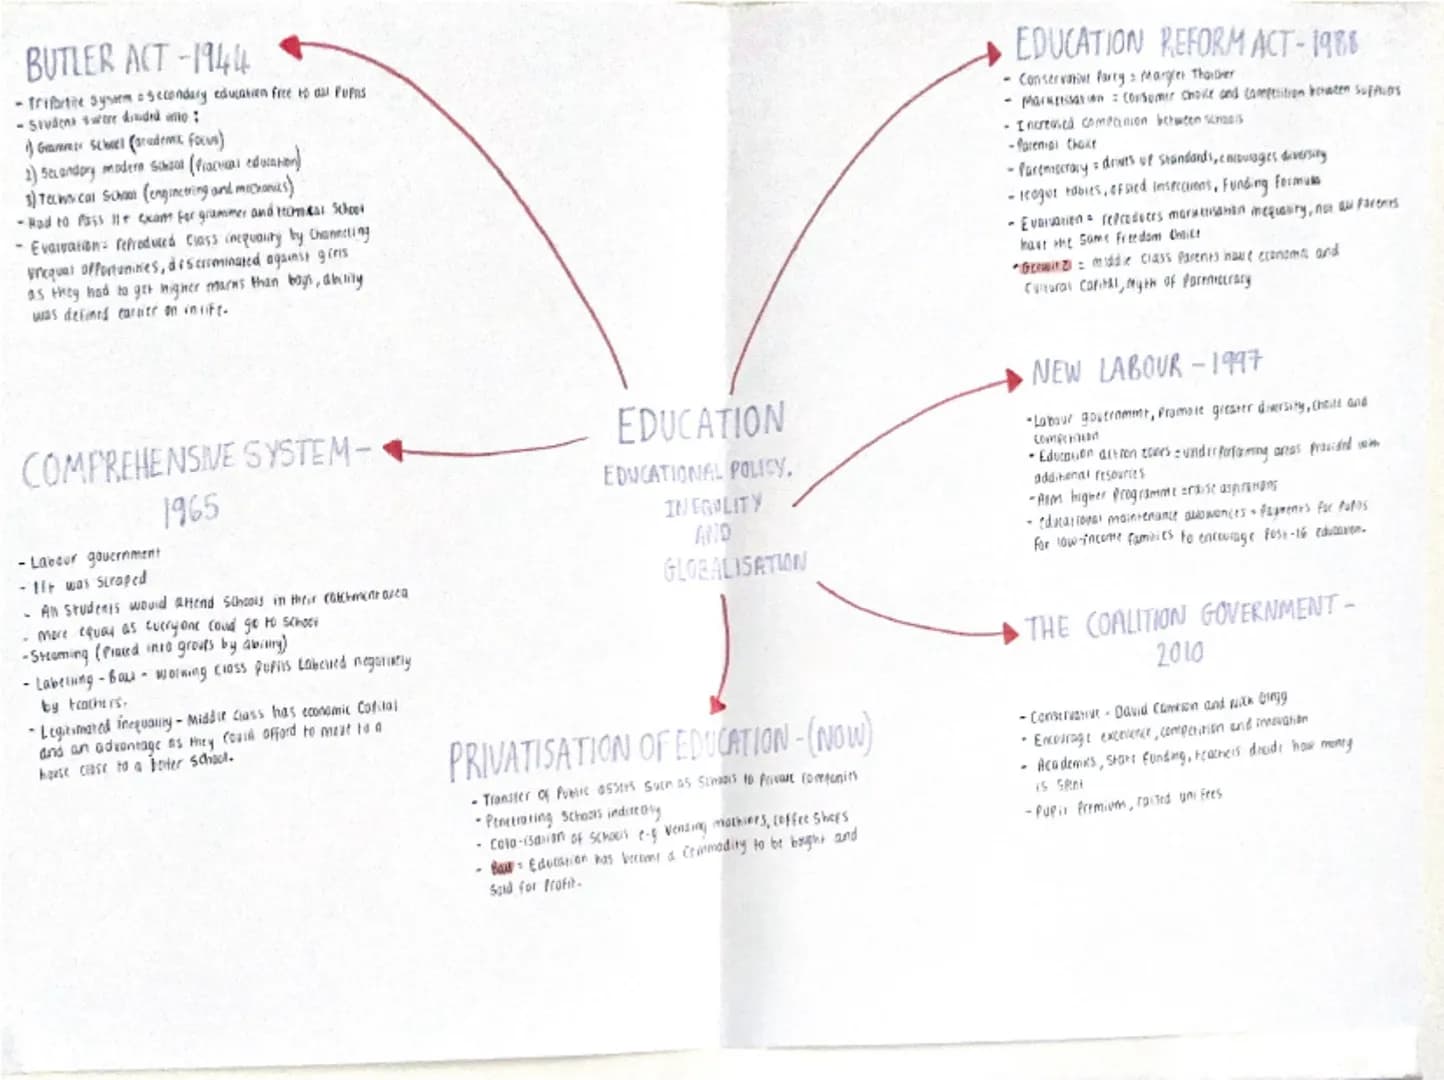 BUTLER ACT - 1944
- Tripartite system = secondary education free to all pupils
- Students were divided into :
1) Grammer School (academic focus)
2) Secondary modern School (Practical education)
3) Technical School (engineering and mechanics)
- Had to Pass 11+ exam for grammer and technical School
- Evaluation = reproduced class inequality by channelling
unequal opportunities, discriminated against girls
as they had to get higher marks than boys, ability
was defined earlier on in life.
COMPREHENSIVE SYSTEM -
1965
- Labour government
- 11+ was scraped
- All Students would attend Schools in their catchment area
- more equal as everyone could go to school
- Streaming (Placed into groups by ability)
- Labelling - Ball - working class pupils Labelled negatively
by teachers.
- Legitimated inequality - Middle class has economic Capital
and an advantage as they could afford to move to a
house close to a better School.
EDUCATION
EDUCATIONAL POLICY,
INEQULITY
AND
GLOBALISATION
PRIVATISATION OF EDUCATION - (NOW)
- Transfer of Public assets such as Schools to Private Companies
- Penetrating Schools indirectly
- Cola-isation of Schools e.g Vending machines, Coffee Shops
- Ball = Education has become a Commodity to be bought and
Sold for Profit.
EDUCATION REFORM ACT - 1988
- Conservative Party = Margret Thatcher
- Marketisation = Consumer Choice and Competition between Suppliers
- Increased competition between schools
- Parental Choice
- Parentocracy = drives up Standards, encourages diversity
- league tables, ofsted Inspections, Funding Formula
- Evaluation = reproduces marketisation inequality, not all Parents
have the same freedom Choice
- Gerwitz = middle Class Parents have economic and
Cultural Capital, Myth of Parentocracy
NEW LABOUR - 1997
- Labour government, Promote greater diversity, choice and
Competition
- Education action zones = underperforming areas provided with
additional resources
- Aim higher Programme = raise aspirations
- educational maintenance allowances = Payments for Pupils
for low-income families to encourage Post-16 education.
THE COALITION GOVERNMENT -
2010
- Conservative - David Cameron and Nick Clegg
- Encourage excellence, competition and innovation
- Academies, State Funding, teachers decide how money
is Spent
- Pupil Premium, raised uni fees